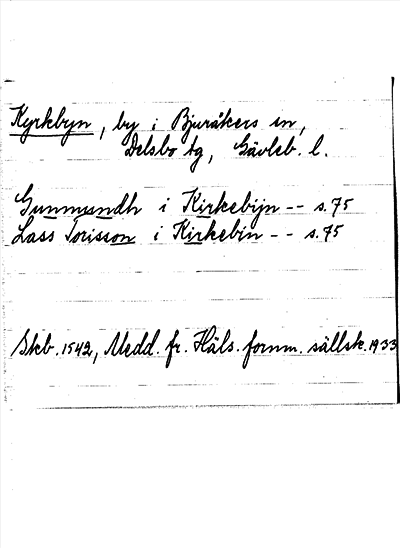 Kyrkbyn, by i Bjuråkers sn,
Delsbo tg, Gävleb. l.
Gunnmundh i Kirkebijn -- s. 75
Lass Torisson i Kirkebin -- s. 75
Skb. 1542, Medd. fr. Häls. fornm. sällsk. 1933